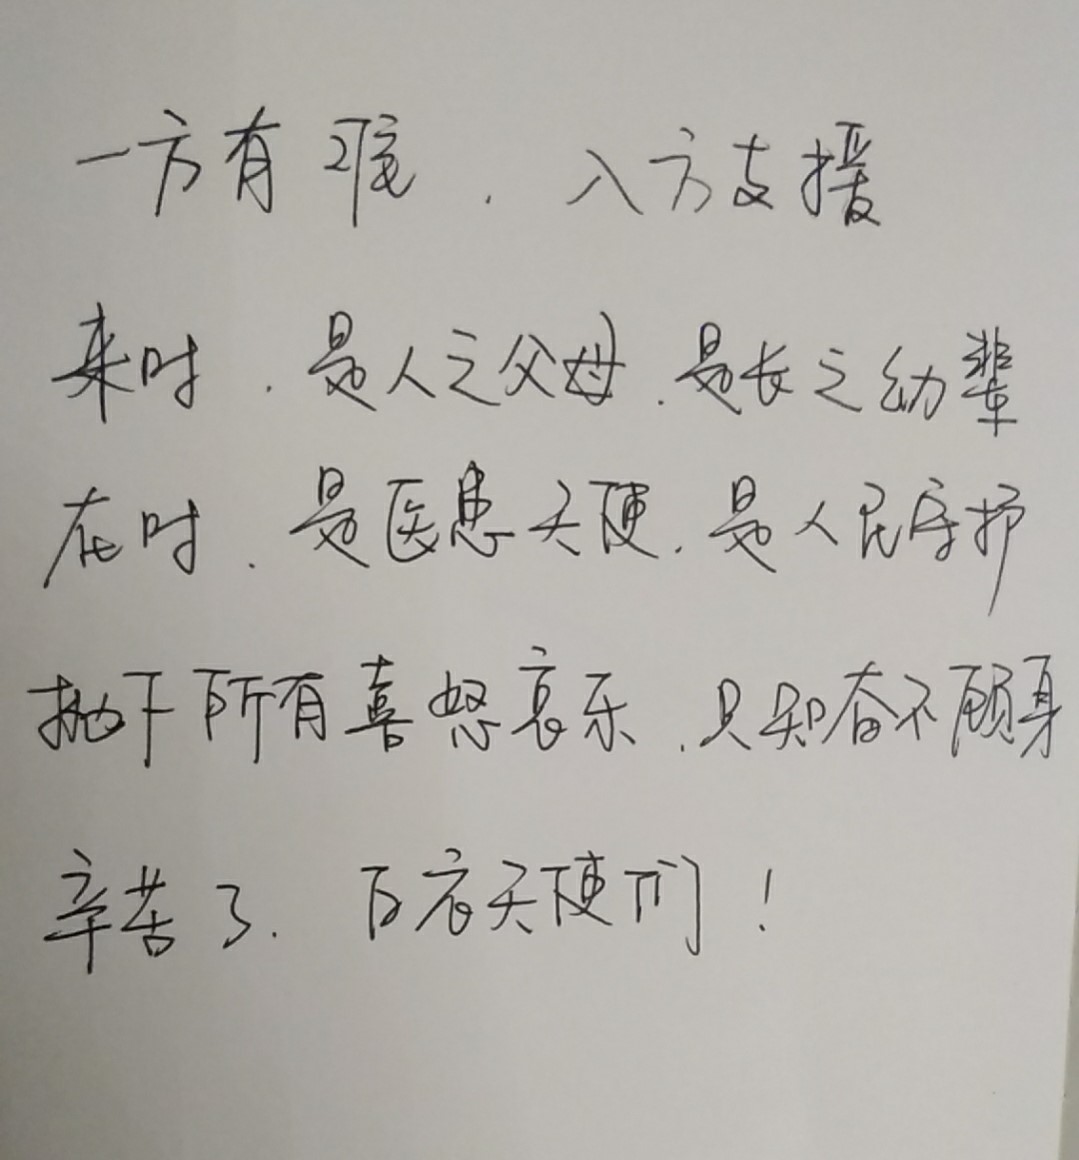 一方有难，八方支援
来时，是人之父母，是长之幼辈
在时，是医患天使，是人民守护
抛下所有喜怒哀乐，只知奋不顾身
辛苦了，白衣天使们！